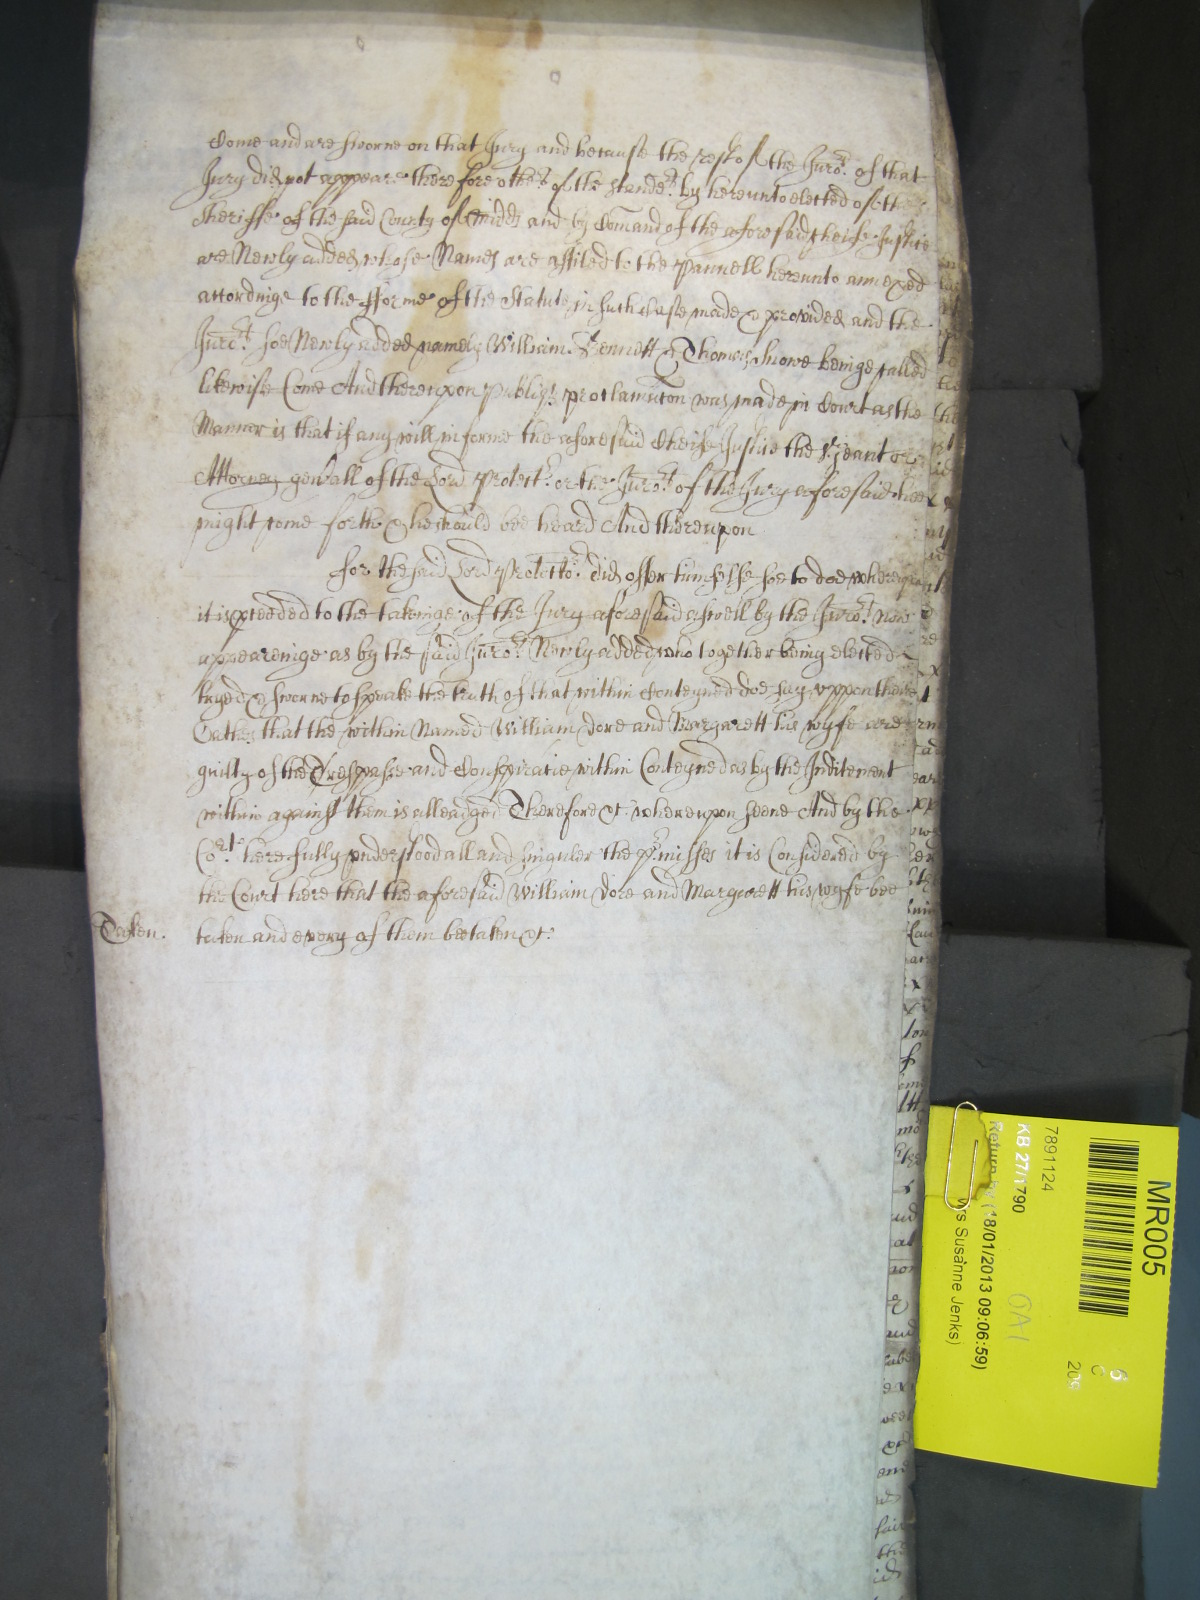 Come and are sworne on that Jury and because the rest of the Juro.rs of that
Jury did not appeare therefore others of the stande.rs by hereunto elected of the
Sheriffe of the said County of Midds and by Comand of the aforesaid cheife Justice
are Newly added whose Names are affiled to the Pannell hereunto annexed
accordinge to the fforme of the Statute in such case made & provided and the
Juro.rs soe Newly added namely William Kennett & Thomas Snowe beinge called
likewise Come And thereupon publiq. proclamacon was made in Court as the
Manner is that if any will informe the aforesaid Cheife Justice the S.jeant or
Attorney gen.all of the Lord Protect.or or the Juro.rs of the Jury aforesaid hee
might come forth & he should bee heard And thereupon
for the said Lord Protecto.r did offer himselfe soe to doe whereupon
it is p.ceeded to the takeinge of the Jury aforesaid aswell by the Juro.rs now
appeareinge as by the said Juro.rs Newly added who together being elected
tryed & sworne to speake the truth of that within Conteyned doe say uppon theire
Oathes that the within Named William Dore and Margarett his wyfe are
guilty of the Trespasse and Conspiracie within Conteyned as by the Inditement
within against them is alleadged Therefore &c. whereupon seene And by the
Co.rt here fully understood all and singuler the p.misses it is Considered by
the Court here that the aforesaid William Dore and Margarett his wyfe bee
Taken. taken and every of them bee taken &c.
MR005
7891124
KB 27/1790
Return by (18/01/2013 09:06:59)
Mrs Susanne Jenks)